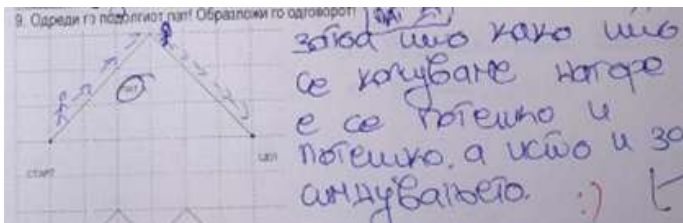 9. Одреди го подолгиот пат! Образложи го одговорот!
затоа што како што
се качуваме нагоре
е се потешко и
потешко. а исто и за
симнувањето. :)
СТАРТ
ЦЕЛ